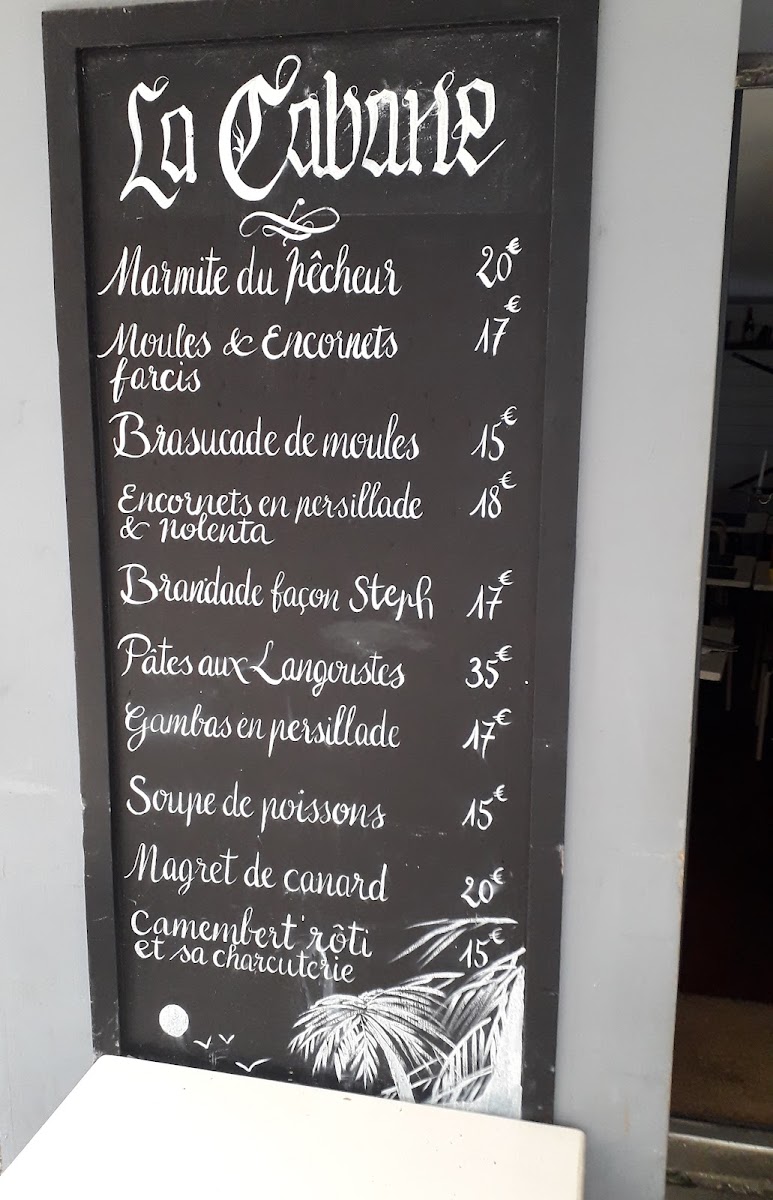 La Cabane
Marmite du pêcheur 20€
Moules & Encornets 17€
farcis
Brasucade de moules 15€
Encornets en persillade 18€
& polenta
Brandade façon Steph 17€
Pâtes aux Langoustes 35€
Gambas en persillade 17€
Soupe de poissons 15€
Magret de canard 20€
Camembert rôti 15€
et sa charcuterie